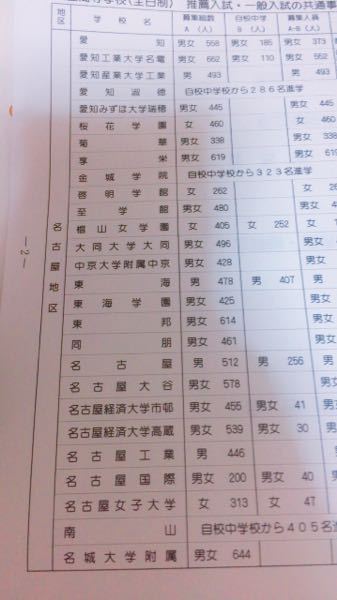 高等学校(全日制) 推薦入試・一般入試の共通事
地区 学校名 募集総数 A (人) 自校中学 B (人) 募集人員 A-B (人)
愛知 男女 558 男女 185 男女 373
愛知工業大学名電 男女 662 男女 110 男女 552
愛知産業大学工業 男 493 男 493
愛知淑徳 自校中学校から286名進学
愛知みずほ大学瑞穂 男女 445 男女 445
桜花学園 女 460 女 460
菊華 男女 338 男女 338
享栄 男女 619 男女 619
金城学院 自校中学校から323名進学
啓明学館 女 262 女
至学館 男女 480 男女
椙山女学園 女 405 女 252 女
大同大学大同 男女 496 男女
中京大学附属中京 男女 428 男女
東海 男 478 男 407 男
東海学園 男女 425 男女
東邦 男女 614
同朋 男女 461
名古屋 男 512 男 256
名古屋大谷 男女 578
名古屋経済大学市邨 男女 455 男女 41
名古屋経済大学高蔵 男女 539 男女 30
名古屋工業 男 446
名古屋国際 男女 200 男女 40
名古屋女子大学 女 313 女 47
南山 自校中学校から405名進
名城大学附属 男女 644
名古屋地区
—2—